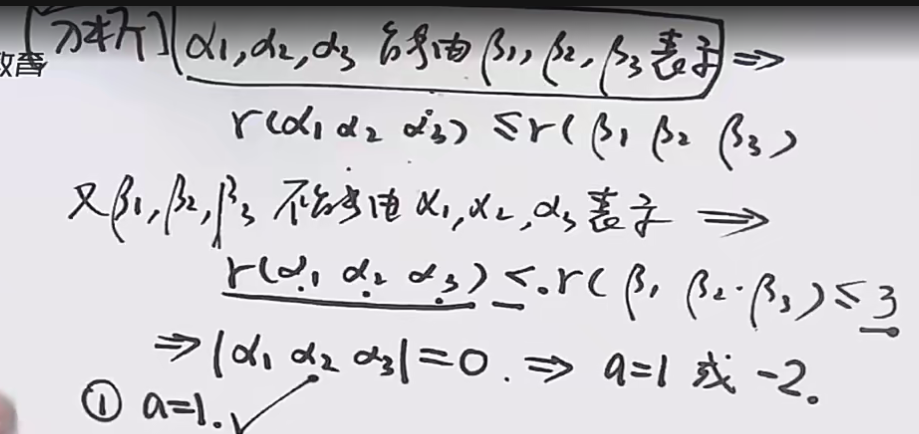 [分析] α1,α2,α3 能由 β1,β2,β3 表示 ⇒
教育
r(α1 α2 α3) ≤ r(β1 β2 β3)
又β1,β2,β3 不能由 α1,α2,α3 表示 ⇒
r(α1 α2 α3) ≤ r(β1 β2 β3) ≤ 3
⇒ |α1 α2 α3| = 0. ⇒ a=1 或 -2.
① a=1. ✓